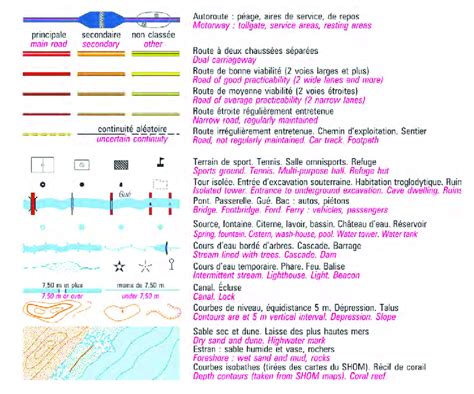 Autoroute : péage, aires de service, de repos
Motorway : tollgate, service areas, resting areas
principale secondaire non classée
main road secondary other
Route à deux chaussées séparées
Dual carriageway
Route de bonne viabilité (2 voies larges et plus)
Road of good practicability (2 wide lanes and more)
Route de moyenne viabilité (2 voies étroites)
Road of average practicability (2 narrow lanes)
Route étroite régulièrement entretenue
Narrow road, regularly maintained
continuité aléatoire
uncertain continuity
Route irrégulièrement entretenue. Chemin d'exploitation. Sentier
Road, not regularly maintained. Car track. Footpath
Terrain de sport. Tennis. Salle omnisports. Refuge
Sports ground. Tennis. Multi-purpose hall. Refuge hut
Tour isolée. Entrée d'excavation souterraine. Habitation troglodytique. Ruin
Isolated tower. Entrance to underground excavation. Cave dwelling. Ruins
Gué
Pont. Passerelle. Gué. Bac : autos, piétons
Bridge. Footbridge. Ford. Ferry : vehicles, passengers
Source, fontaine. Citerne, lavoir, bassin. Château d'eau. Réservoir
Spring, fountain. Cistern, wash-house, pool. Water tower. Water tank
Cours d'eau bordé d'arbres. Cascade. Barrage
Stream lined with trees. Cascade. Dam
Cours d'eau temporaire. Phare. Feu. Balise
Intermittent stream. Lighthouse. Light. Beacon
7,50 m et plus moins de 7,50 m
7,50 m or over under 7,50 m
Canal. Écluse
Canal. Lock
Courbes de niveau, équidistance 5 m. Dépression. Talus
Contours are at 5 m vertical interval. Depression. Slope
Sable sec et dune. Laisse des plus hautes mers
Dry sand and dune. Highwater mark
Estran : sable humide et vase, rochers
Foreshore : wet sand and mud, rocks
Courbes isobathes (tirées des cartes du SHOM). Récif de corail
Depth contours (taken from SHOM maps). Coral reef